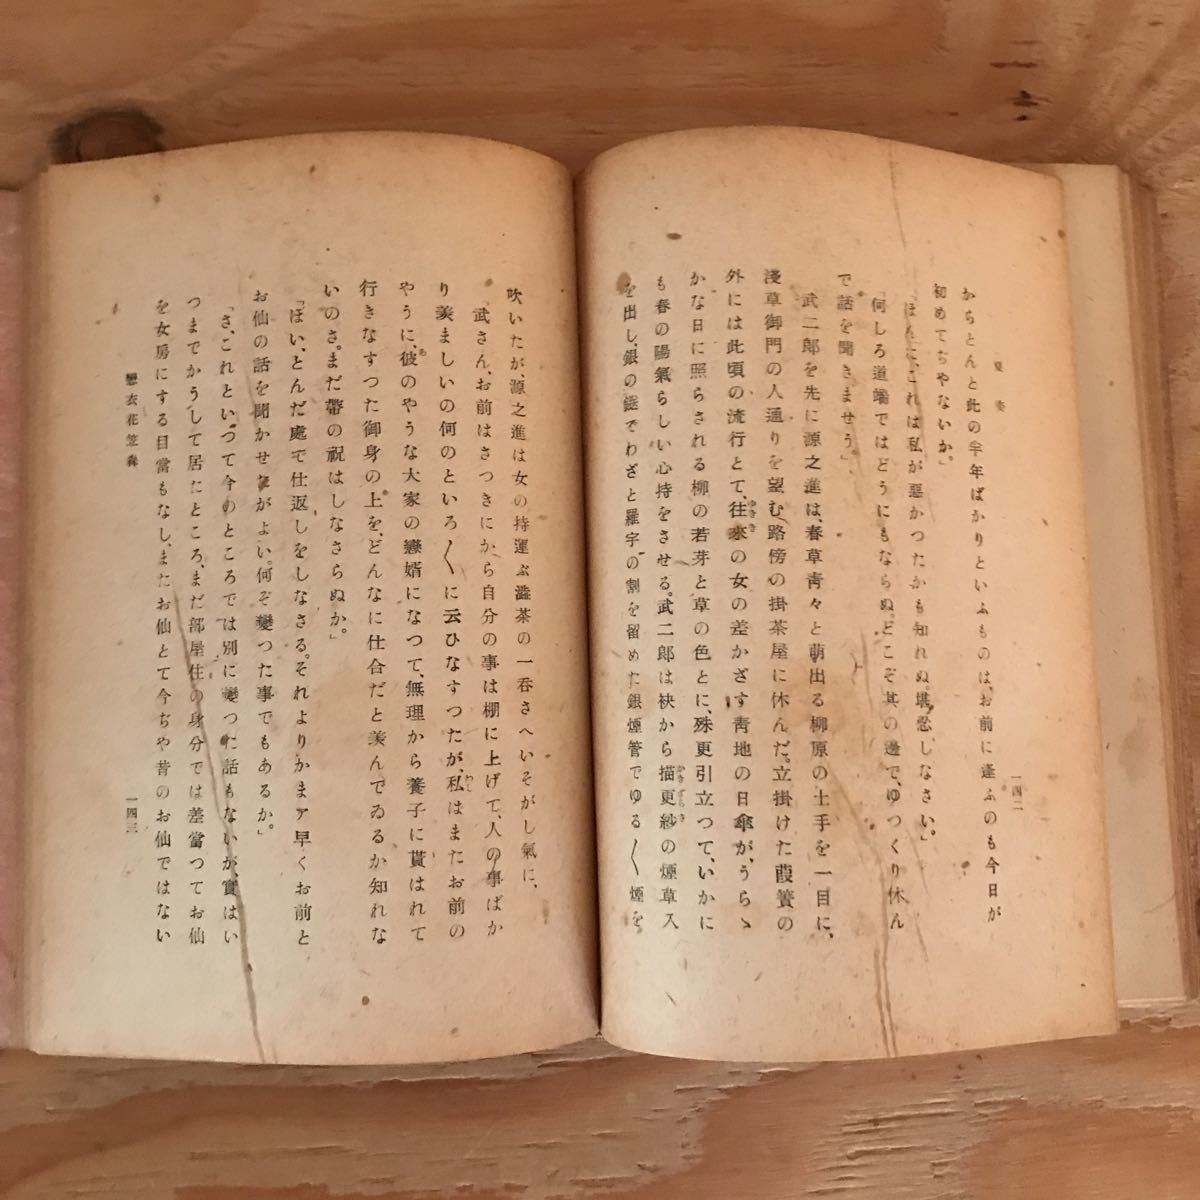 夏姿
一四二
からとんと此の半年ばかりといふものは、お前に逢ふのも今日が
初めてぢやないか。」
「ほんに、これは私が惡かつたかも知れぬ。堪忍しなさい。」
「何しろ道端ではどうにもならぬ。どこぞ其の邊で、ゆつくり休ん
で話を聞きませう。」
武二郎を先に源之進は、春草靑々と萌出る柳原の土手を一目に、
淺草御門の人通りを望む路傍の掛茶屋に休んだ。立掛けた葭簀の
外には此頃の流行とて、往來の女の差かざす靑地の日傘が、うらゝ
かな日に照らされる柳の若芽と草の色とに、殊更引立つて、いかに
も春の陽氣らしい心持をさせる。武二郎は袂から描更紗の煙草入
を出し、銀の鎚でわざと羅宇の割を留めた銀煙管でゆる〱煙を
吹いたが、源之進は女の持運ぶ澁茶の一呑さへいそがし氣に、
「武さん、お前はさつきにから自分の事は棚に上げて、人の事ばか
り羨ましいの何のといろ〱に云ひなすつたが、私はまたお前の
やうに、彼のやうな大家の戀婿になつて、無理から養子に貰はれて
行きなすつた御身の上を、どんなに仕合だと羨んでゐるか知れな
いのさ。まだ帶の祝はしなさらぬか。」
「ほい、とんだ處で仕返しをしなさる。それよりかまア早くお前と
お仙の話を聞かせるがよい。何ぞ變つた事でもあるか。」
「さ、これといつて今のところでは別に變つた話もないが、實はい
つまでかうして居たところ、まだ部屋住の身分では差當つてお仙
を女房にする目當もなし、またお仙とて今ぢや昔のお仙ではない
戀衣花笠森
一四三